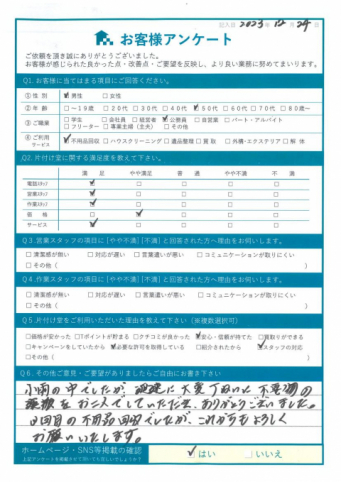 記入日 2023 年 12 月 29 日
お客様アンケート
ご依頼を頂き誠にありがとうございました。
お客様が感じられた良かった点・改善点・ご要望を反映し、より良い業務に努めてまいります。
Q1. お客様に当てはまる項目にご回答ください。
① 性 別 ☑男性 □女性
② 年 齢 □〜19歳 □20代 □30代 □40代 ☑50代 □60代 □70代 □80歳〜
③ ご職業 □学生 □会社員 □経営者 ☑公務員 □自営業 □パート・アルバイト
□フリーター □専業主婦(主夫) □その他
④ ご利用サービス ☑不用品回収 □ハウスクリーニング □遺品整理 □買取 □外構・エクステリア □解体
Q2. 片付け堂に関する満足度を教えて下さい。
満 足 やや満足 普 通 やや不満 不 満
電話スタッフ ☑ □ □ □ □
営業スタッフ ☑ □ □ □ □
作業スタッフ ☑ □ □ □ □
価 格 □ ☑ □ □ □
サービス ☑ □ □ □ □
Q3. 営業スタッフの項目に[やや不満][不満]と回答された方へ理由をお伺いします。
□清潔感が無い □対応が遅い □言葉遣いが悪い □コミュニケーションが取りにくい
□その他( )
Q4. 作業スタッフの項目に[やや不満][不満]と回答された方へ理由をお伺いします。
□清潔感が無い □対応が遅い □言葉遣いが悪い □コミュニケーションが取りにくい
□その他( )
Q5. 片付け堂をご利用いただいた理由を教えて下さい(※複数選択可)
□価格が安かった □Tポイントが貯まる □クチコミが良かった ☑安心・信頼が持てた □買取りができる
□キャンペーンをしていたから ☑必要な許可を取得している □紹介されたから ☑スタッフの対応
□その他( )
Q6. その他ご意見・ご要望がありましたらご自由にお書き下さい
小雨の中でしたが、迅速に大変丁寧に不要物の
運搬をお二人でしていただき、ありがとうございました。
2回目の不用品回収でしたが、これからもよろしく
お願いいたします。
ホームページ・SNS等掲載の確認
上記アンケートを掲載させて頂いても宜しいでしょうか?
☑はい □いいえ